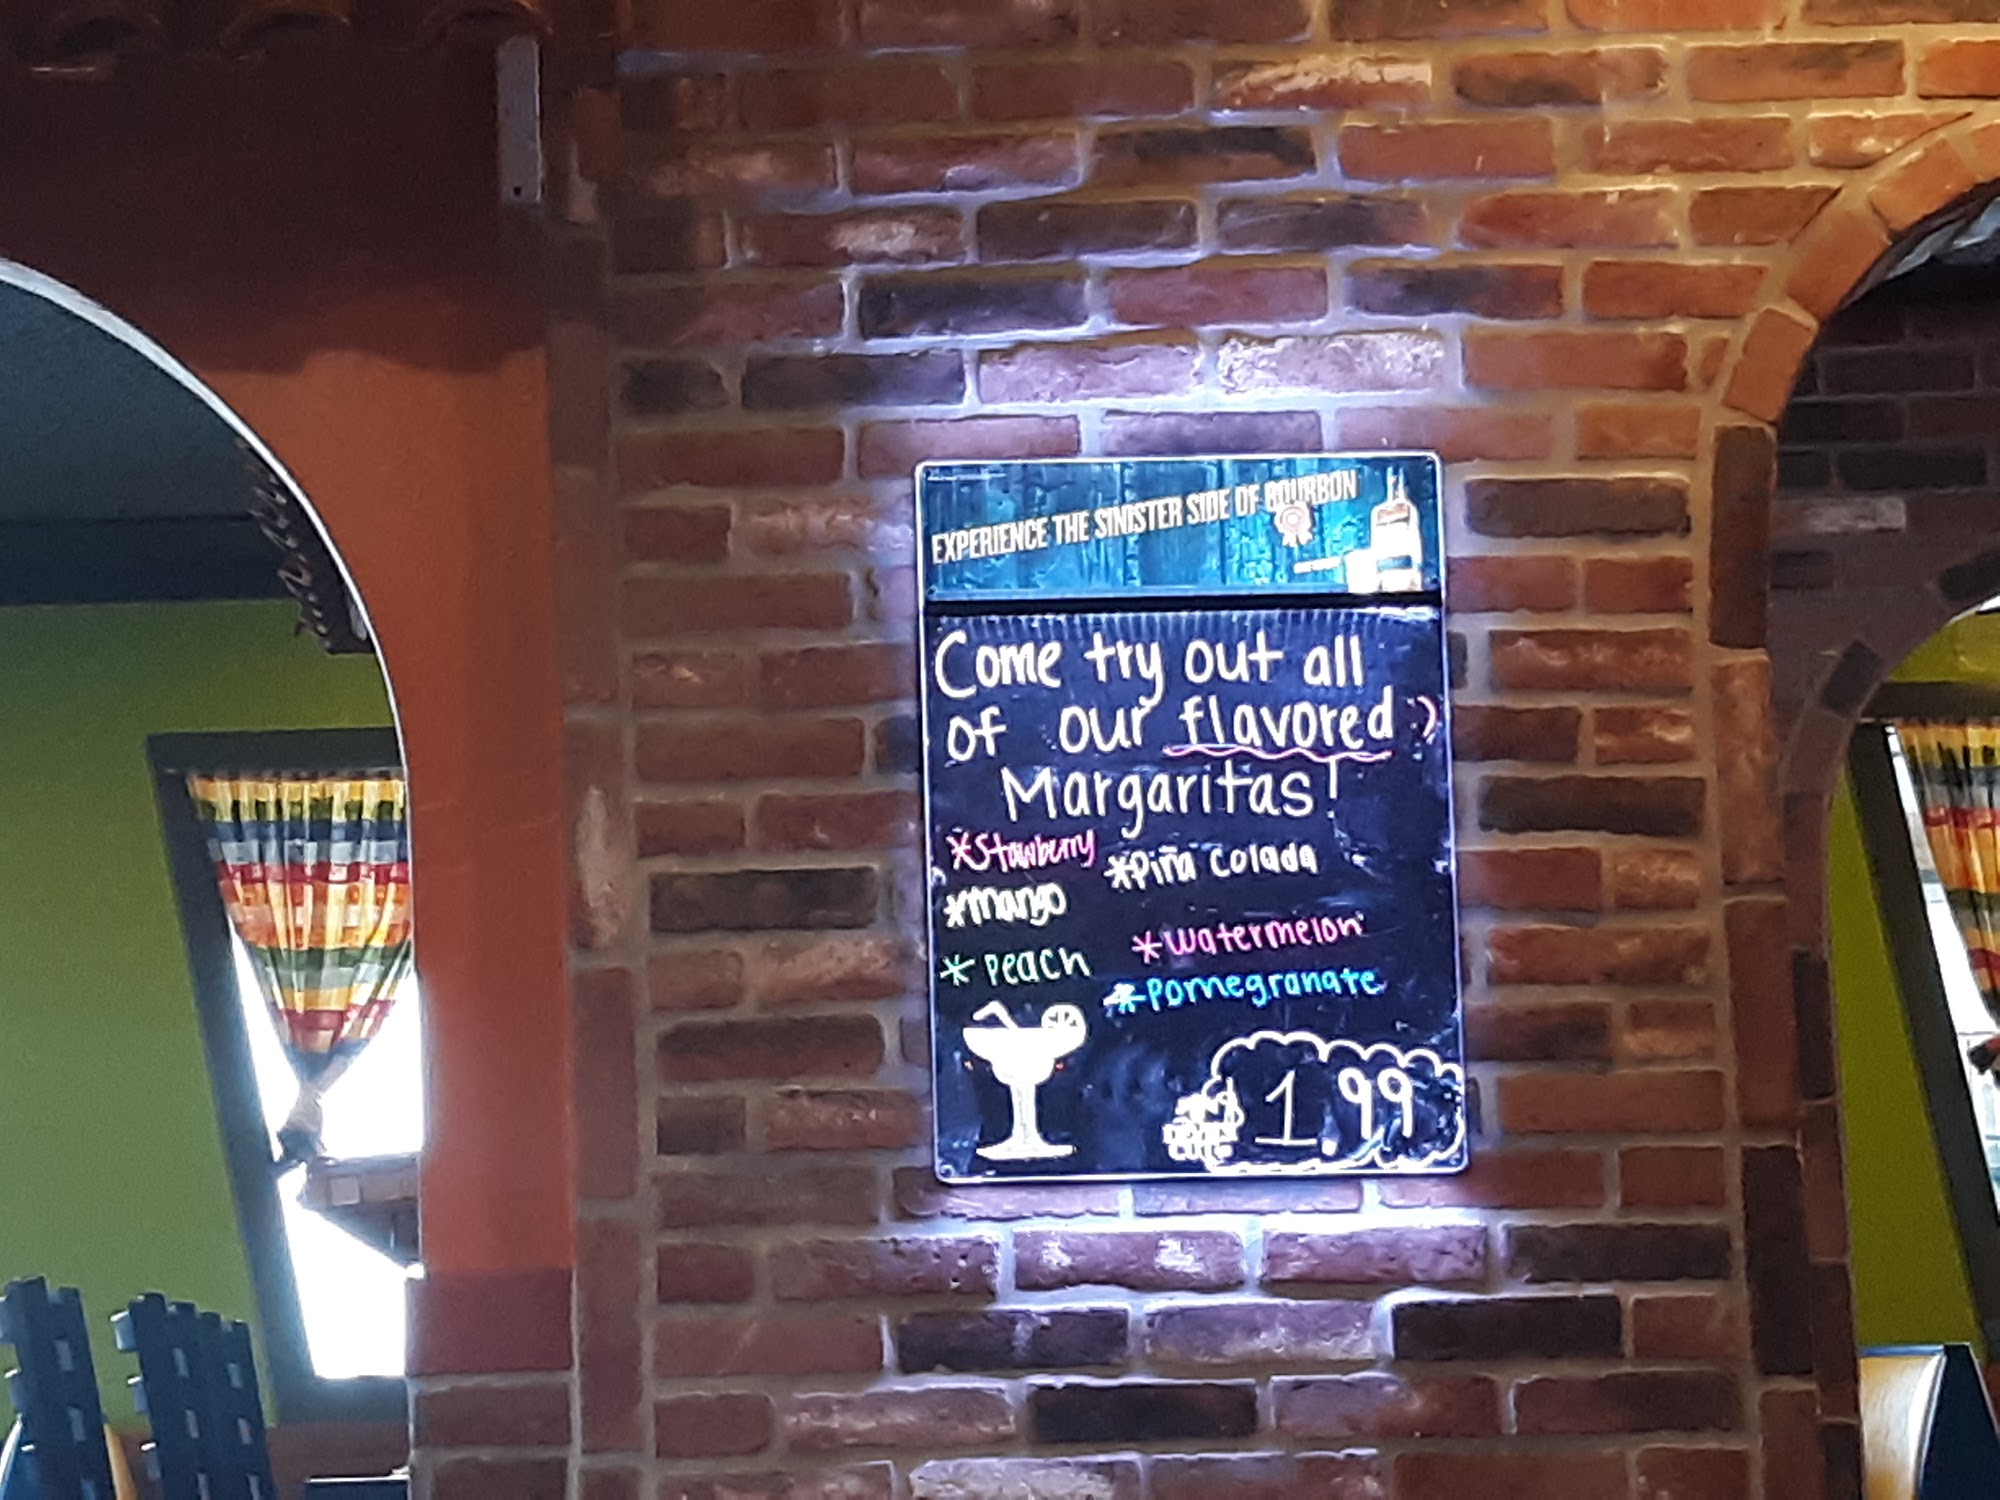 EXPERIENCE THE SINISTER SIDE OF BOURBON
Come try out all
of our flavored :)
Margaritas!
*Stawberry
*Piña Colada
*mango
*watermelon
* Peach
*Pomegranate
$1.99